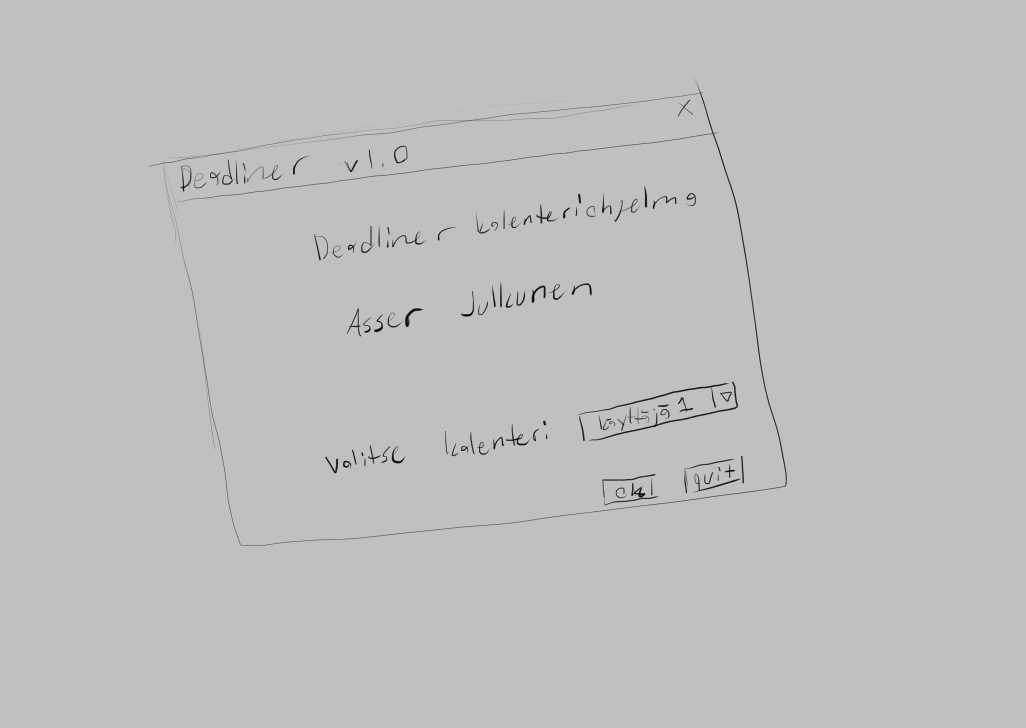 Deadliner v1.0 X
Deadliner kalenteriohjelma
Asser Julkunen
Valitse kalenteri käyttäjä 1
ok quit